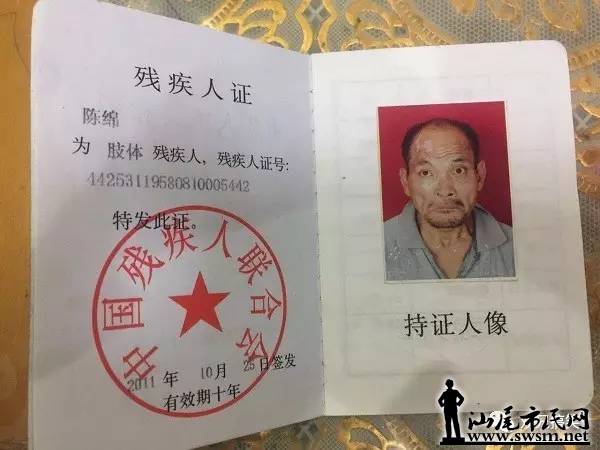 残疾人证
陈绵
为 肢体 残疾人，残疾人证号：
44253119580810005442
特发此证。
中国残疾人联合会
2011 年 10 月 25 日签发
有效期十年
持证人像
汕尾市民网
www.swsm.net